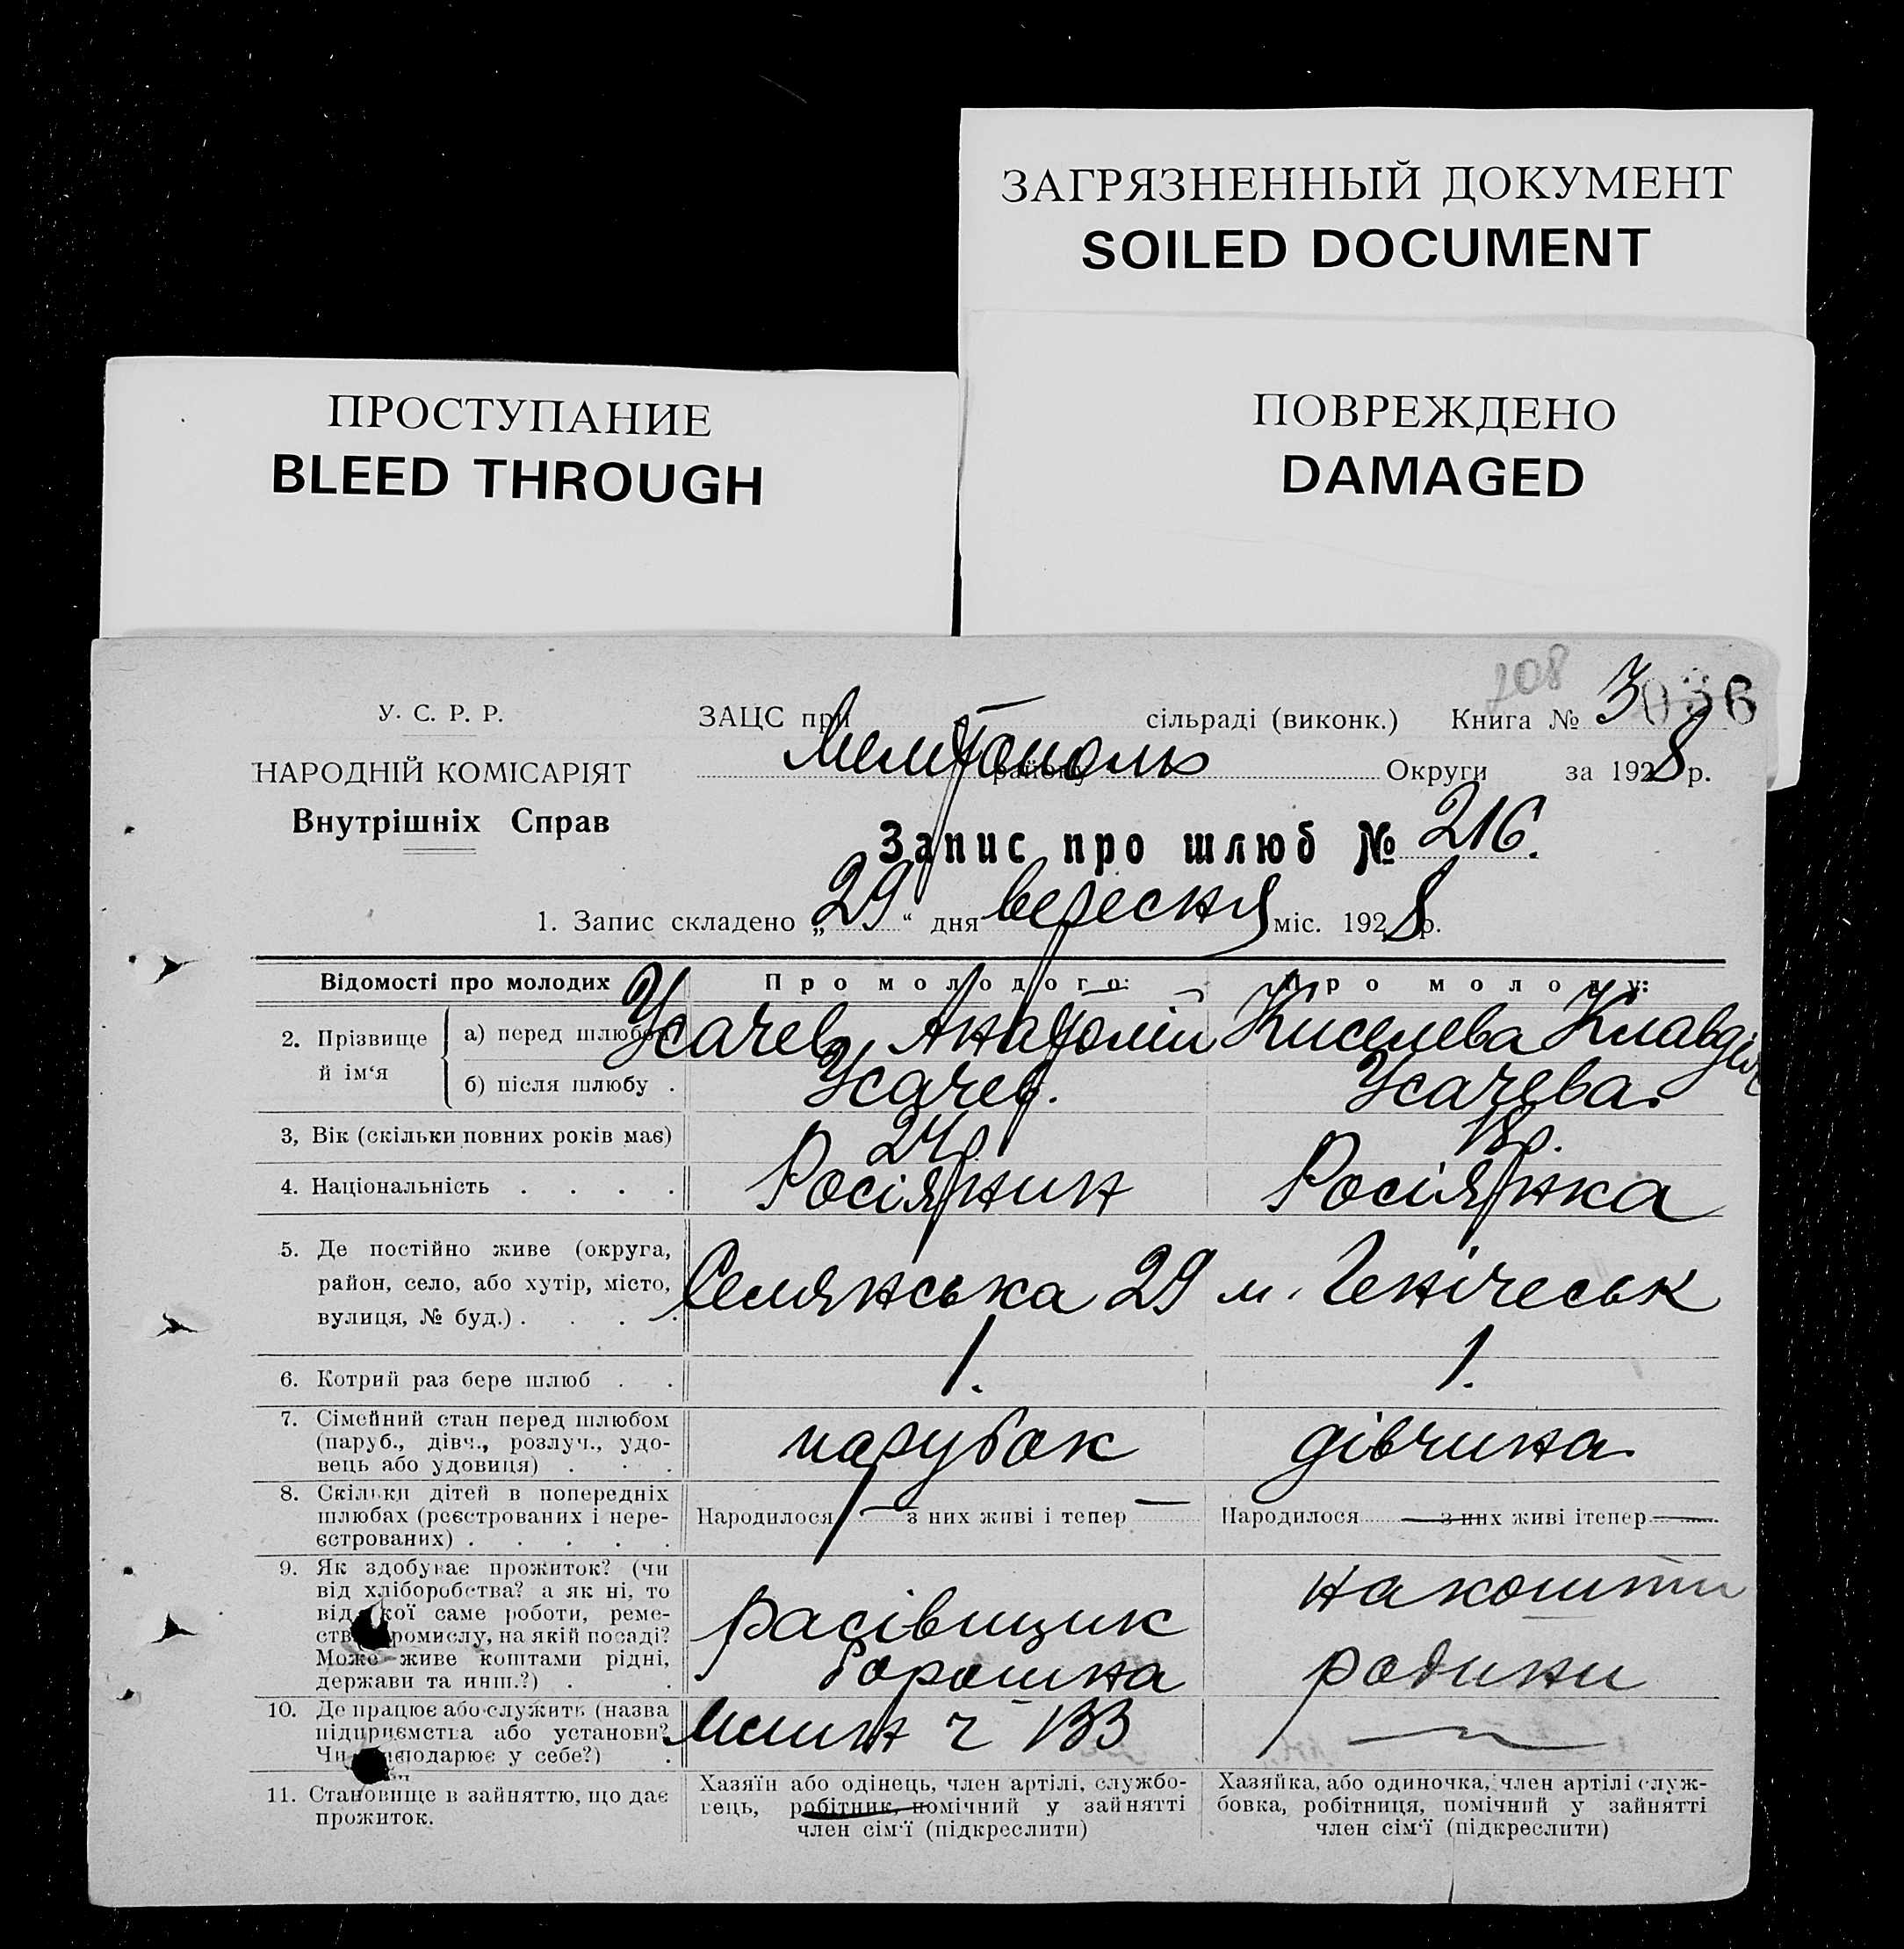 ЗАГРЯЗНЕННЫЙ ДОКУМЕНТ
SOILED DOCUMENT
ПРОСТУПАНИЕ
BLEED THROUGH
ПОВРЕЖДЕНО
DAMAGED
208
У. С. Р. Р.
НАРОДНІЙ КОМІСАРІЯТ
Внутрішніх Справ
ЗАЦС при сільраді (виконк.) Книга № 3 036
Мелітополь району Округи за 1928 р.
Запис про шлюб № 216.
1. Запис складено „29“ дня вересня міс. 1928 р.
Відомості про молодих Про молодого: Про молоду:
2. Прізвище й ім‘я
а) перед шлюбом Усачев Анатолій Киселева Клавдія
б) після шлюбу . Усачев. Усачева.
3, Вік (скільки повних років має) 24 р. 18 р.
4. Національність . . . . Росіянин Росіянка
5. Де постійно живе (округа,
район, село, або хутір, місто,
вулиця, № буд.) . . . .
Селянська 29 м. Генічеськ
6. Котрий раз бере шлюб . . 1. 1.
7. Сімейний стан перед шлюбом
(паруб., дівч., розлуч., удо-
вець або удовиця) . . .
парубок дівчина
8. Скільки дітей в попередніх
шлюбах (реєстрованих і нере-
єстрованих) . . . . .
Народилося — з них живі і тепер — Народилося — з них живі і тепер —
9. Як здобуває прожиток? (чи
від хліборобства? а як ні, то
від кої саме роботи, реме-
ств ромислу, на якій посаді?
Може живе коштами рідні,
держави та инш.?) . .
расівщик
борошна
на кошти
родини
10. Де працює або служить (назва
підприємства або установи?
Чи подарює у себе?) .
Млин ч 133 —
11. Становище в зайняттю, що дає
прожиток.
Хазяїн або одінець, член артілі, службо-
вець, робітник, помічний у зайнятті
член сім‘ї (підкреслити)
Хазяйка, або одиночка, член артілі служ-
бовка, робітниця, помічний у зайнятті
член сім‘ї (підкреслити)